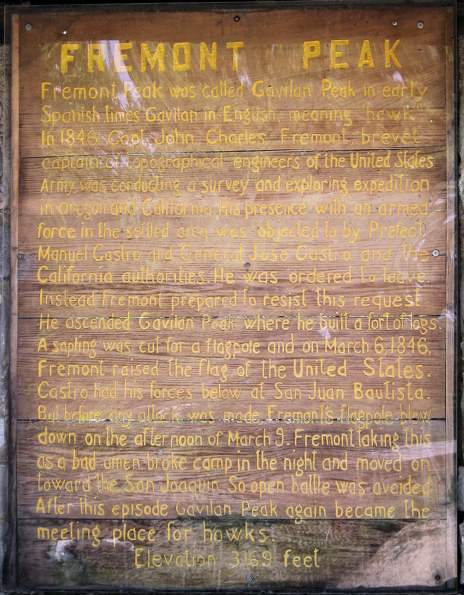 FREMONT PEAK
Fremont Peak was called Gavilan Peak in early
Spanish times Gavilan in English, meaning hawk.
In 1846 Capt. John Charles Fremont brevet
captain of topographical engineers of the United States
Army, was conducting a survey and exploring expedition
in Oregon and California. His presence with an armed
force in the settled area was objected to by Prefect
Manuel Castro and General Jose Castro and the
California authorities. He was ordered to leave.
Instead Fremont prepared to resist this request.
He ascended Gavilan Peak where he built a fort of logs.
A sapling was cut for a flagpole and on March 6, 1846,
Fremont raised the flag of the United States.
Castro had his forces below at San Juan Bautista.
But before any attack was made Fremont's flagpole blew
down on the afternoon of March 9. Fremont taking this
as a bad omen broke camp in the night and moved on
toward the San Joaquin. So open battle was avoided
After this episode Gavilan Peak again became the
meeting place for hawks.
Elevation 3169 feet